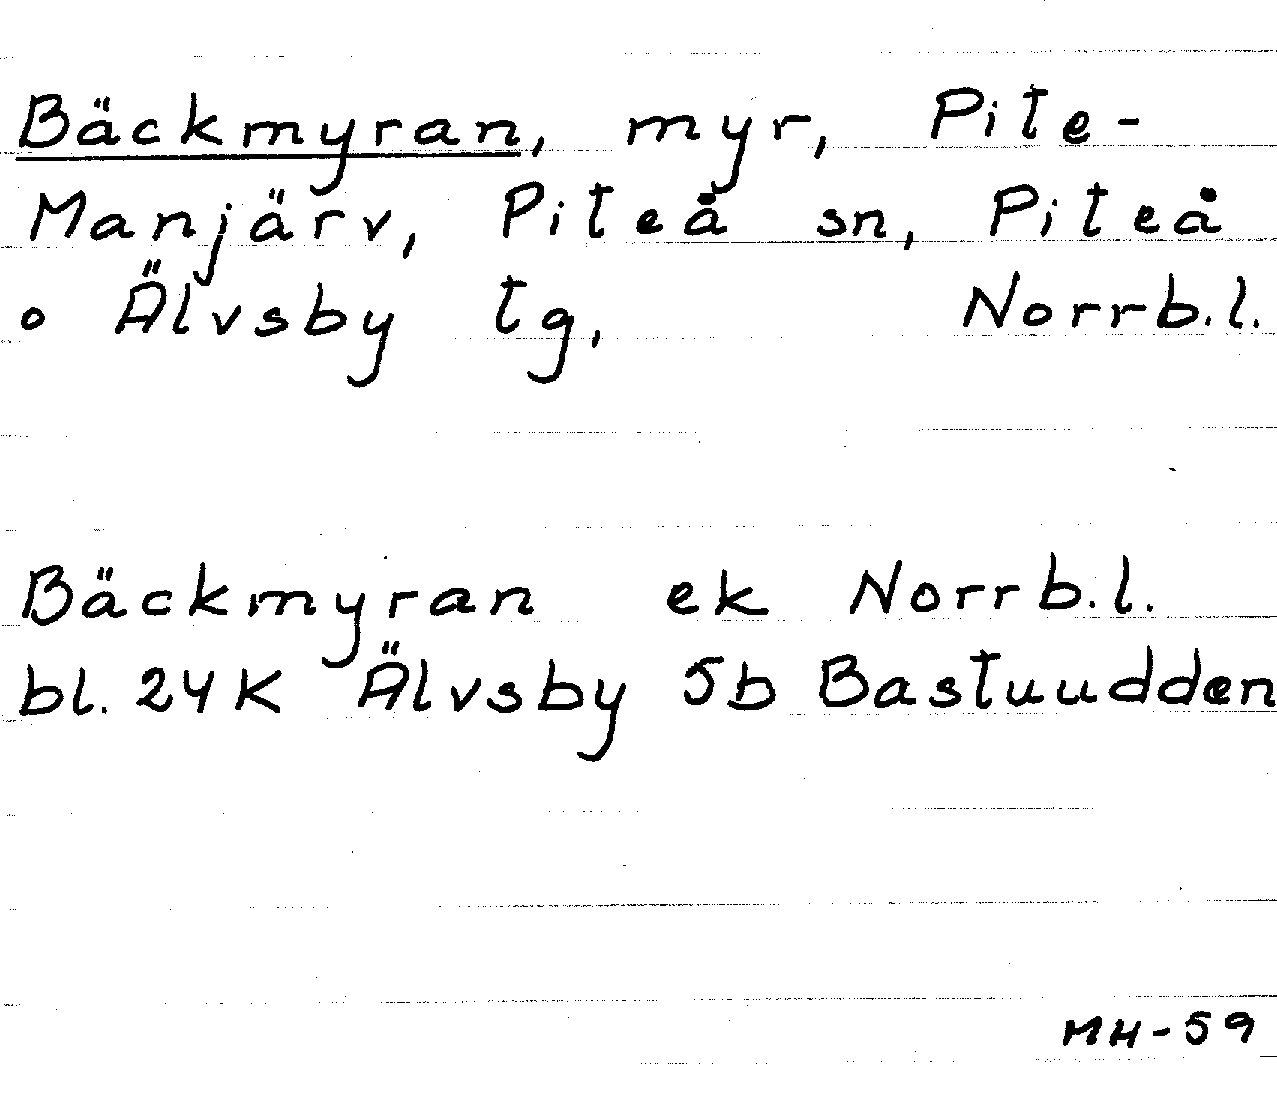 Bäckmyran, myr, Pite-
Manjärv, Piteå sn, Piteå
o Älvsby tg, Norrb.l.
Bäckmyran ek Norrb.l.
bl. 24K Älvsby 5b Bastuudden
MH-59